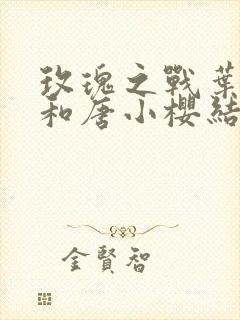 玫瑰之戰葉
和唐小櫻結
金賢智